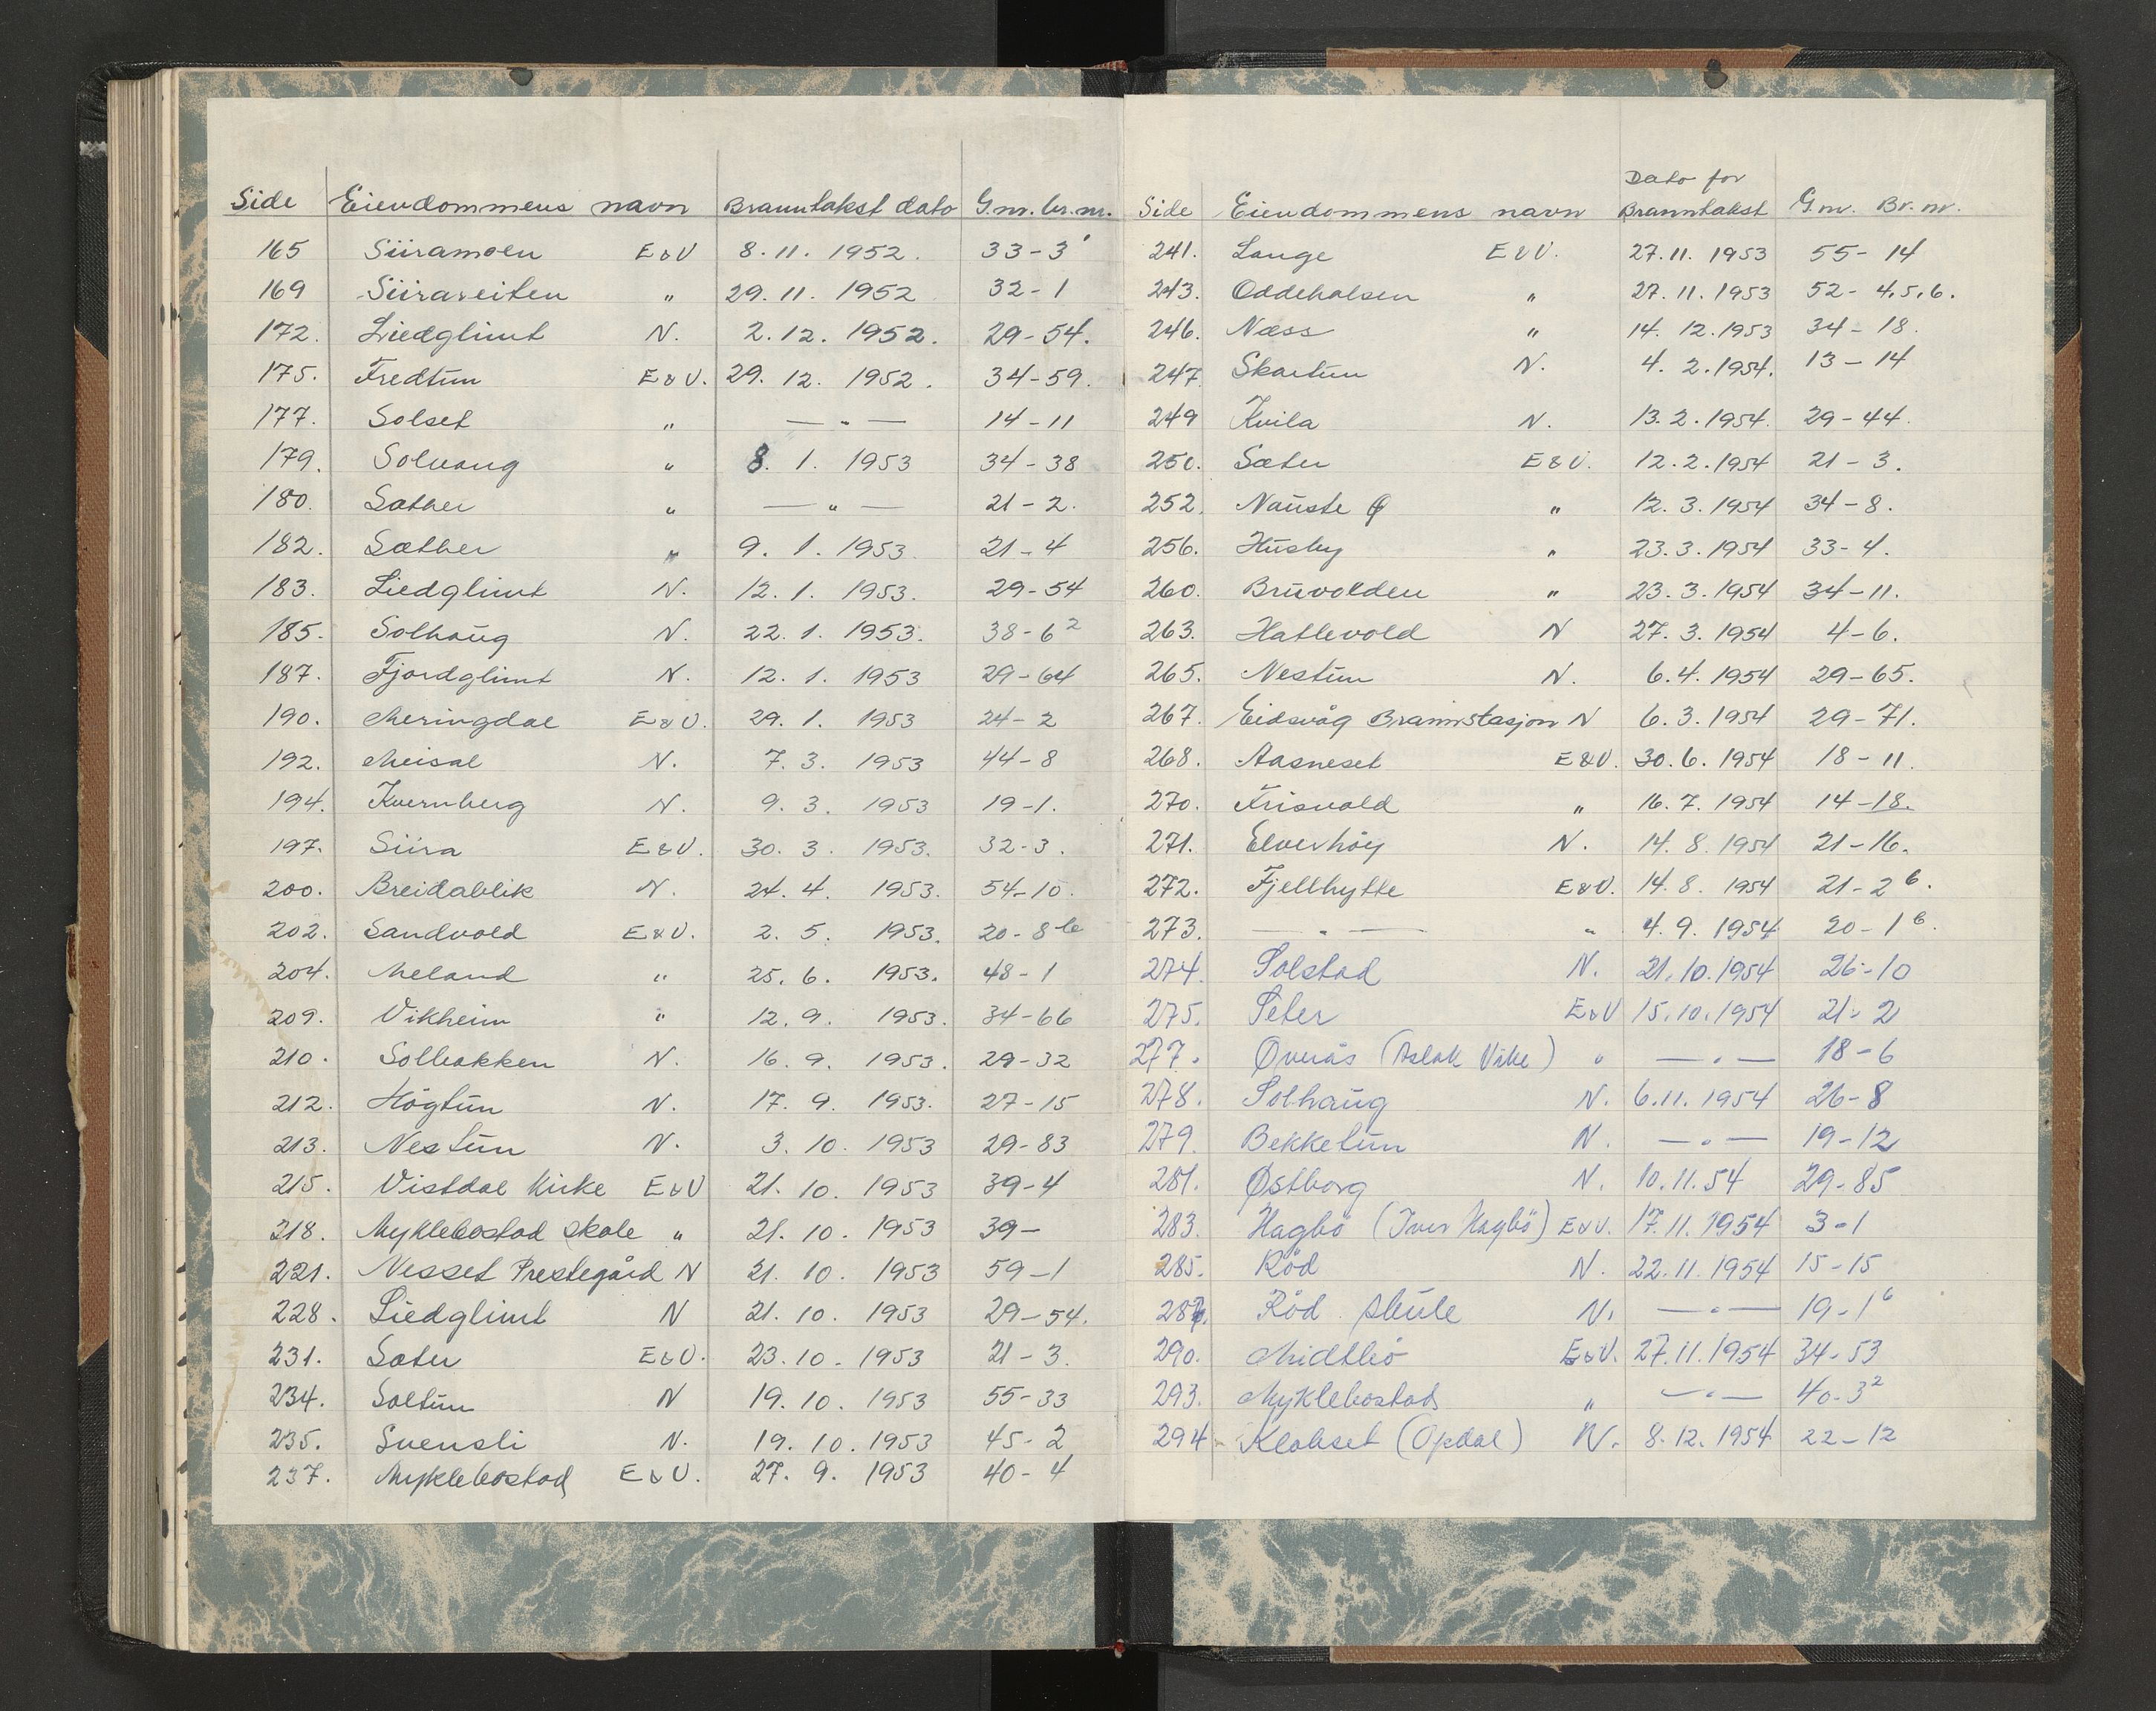 Side Eiendommens navn Branntakst dato G.nr. br.nr.
165 Siiramoen E&V 8. 11. 1952. 33-3
169 Siirareiten " 29. 11. 1952 32-1
172. Liedglimt N. 2. 12. 1952. 29-54.
175. Fredtun E&V. 29. 12. 1952. 34-59.
177. Solset " — " — 14-11
179. Solvang " 8. 1. 1953 34-38
180. Sæther " — " — 21-2.
182. Sæther " 9. 1. 1953. 21-4
183. Liedglimt N. 12. 1. 1953. 29-54
185. Solhaug N. 22. 1. 1953. 38-6²
187. Fjordglimt N. 12. 1. 1953 29-64
190. Meringdal E&V. 29. 1. 1953 24-2
192. Meisal N. 7. 3. 1953 44-8
194. Kvernberg N. 9. 3. 1953 19-1.
197. Siira E&V. 30. 3. 1953. 32-3.
200. Breidablik N. 24. 4. 1953. 54-10.
202. Sandvold E&V. 2. 5. 1953. 20-8
204. Meland " 25. 6. 1953. 48-1
209. Vikheim " 12. 9. 1953. 34-66
210. Solbakken N. 16. 9. 1953. 29-32
212. Högtun N. 17. 9. 1953. 27-15
213. Nestun N. 3. 10. 1953 29-83
215. Vistdal Kirke E&V 21. 10. 1953 39-4
218. Myklebostad skole " 21. 10. 1953 39-
221. Nesset Prestegård N 21. 10. 1953 59-1
228. Liedglimt N 21. 10. 1953 29-54.
231. Sæter E&V. 23. 10. 1953 21-3.
234. Soltun N 19. 10. 1953 55-33
235. Svensli N. 19. 10. 1953 45-2
237. Myklebostad E&V. 27. 9. 1953 40-4
Side Eiendommens navn Dato for Branntakst G.nr. Br.nr.
241. Lange E&V. 27. 11. 1953 55-14
243. Oddehalsen " 27. 11. 1953 52-4.5.6.
246. Næss " 14. 12. 1953 34-18.
247 Skartun N. 4. 2. 1954. 13-14
249 Kvila N. 13. 2. 1954. 29-44.
250. Sæter E&V. 12. 2. 1954 21-3.
252. Nauste Ø " 12. 3. 1954 34-8.
256. Husby " 23. 3. 1954 33-4.
260. Bruvolden " 23. 3. 1954 34-11.
263. Hatlevold N 27. 3. 1954 4-6.
265. Nestun N. 6. 4. 1954 29-65.
267. Eidsvåg Brannstasjon N 6. 3. 1954 29-71.
268. Aasneset E&V. 30. 6. 1954 18-11.
270. Frisvold " 16. 7. 1954 14-18.
271. Elverhöy N. 14. 8. 1954 21-16.
272. Fjellhytte E&V. 14. 8. 1954 21-2⁶.
273. — " — " 4. 9. 1954 20-1⁶.
274. Solstad N. 21. 10. 1954 26-10
275. Seter E&V 15. 10. 1954 21-2
277. Øverås (Aslak Vike) " — " — 18-6
278. Solhaug N. 6. 11. 1954 26-8
279. Bekketun N. — " — 19-12
281. Østborg N. 10. 11. 54 29-85
283. Hagbö (Iver Hagbö) E&V. 17. 11. 1954 3-1
285. Röd N. 22. 11. 1954 15-15
287. Röd skule N. — " — 19-1⁶
290. Midtbö E&V. 27. 11. 1954 34-53
293. Myklebostad " — " — 40-3²
294 Klebset (Opdal) N. 8. 12. 1954 22-12